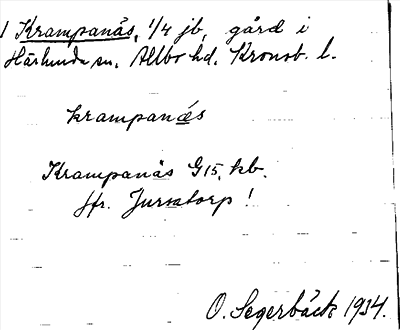 1 Krampanås, 1/4 jb, gård i
Härlunda sn, Allbo hd. Kronob. l.
krampanås
Krampanås G15, kb.
jfr. Jursatorp!
O. Segerbäck 1934.